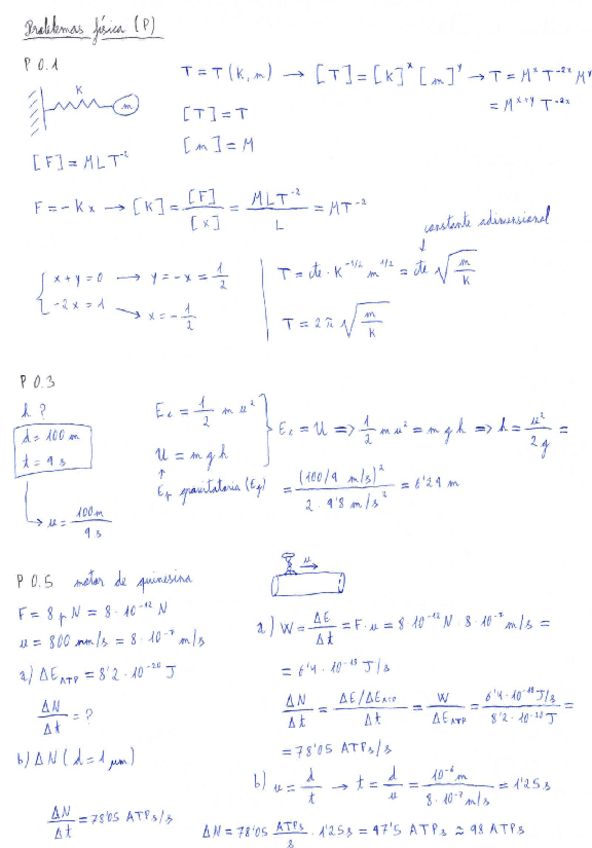 Problemas física (P)
P 0.1
K
m
T = T(K, m) → [T] = [K]^x [m]^y → T = M^x T^-2x M^y
= M^x+y T^-2x
[T] = T
[m] = M
[F] = MLT^-2
F = -Kx → [K] = [F]/[x] = MLT^-2/L = MT^-2
constante adimensional
{ x + y = 0 → y = -x = 1/2
-2x = 1 → x = -1/2
T = cte · K^-1/2 m^1/2 = cte √(m/K)
T = 2π √(m/K)
P 0.3
h ?
d = 100 m
t = 9 s
u = 100m/9s
Ec = 1/2 m u²
U = m g h
Ep gravitatoria (Ep)
Ec = U => 1/2 m u² = m g h => h = u²/2g =
= (100/9 m/s)²/2 · 9'8 m/s² = 6'29 m
P 0.5 motor de quinesina
u
F = 8 pN = 8 · 10^-12 N
u = 800 nm/s = 8 · 10^-7 m/s
a) ΔE_ATP = 8'2 · 10^-20 J
ΔN/Δt = ?
b) ΔN (d = 1 μm)
ΔN/Δt = 78'05 ATPs/s
a) W = ΔE/Δt = F · u = 8 · 10^-12 N · 8 · 10^-7 m/s =
= 6'4 · 10^-18 J/s
ΔN/Δt = ΔE/ΔE_ATP/Δt = W/ΔE_ATP = 6'4 · 10^-18 J/s/8'2 · 10^-20 J =
= 78'05 ATPs/s
b) u = d/t → t = d/u = 10^-6 m/8 · 10^-7 m/s = 1'25 s
ΔN = 78'05 ATPs/s · 1'25 s = 97'5 ATPs ≈ 98 ATPs